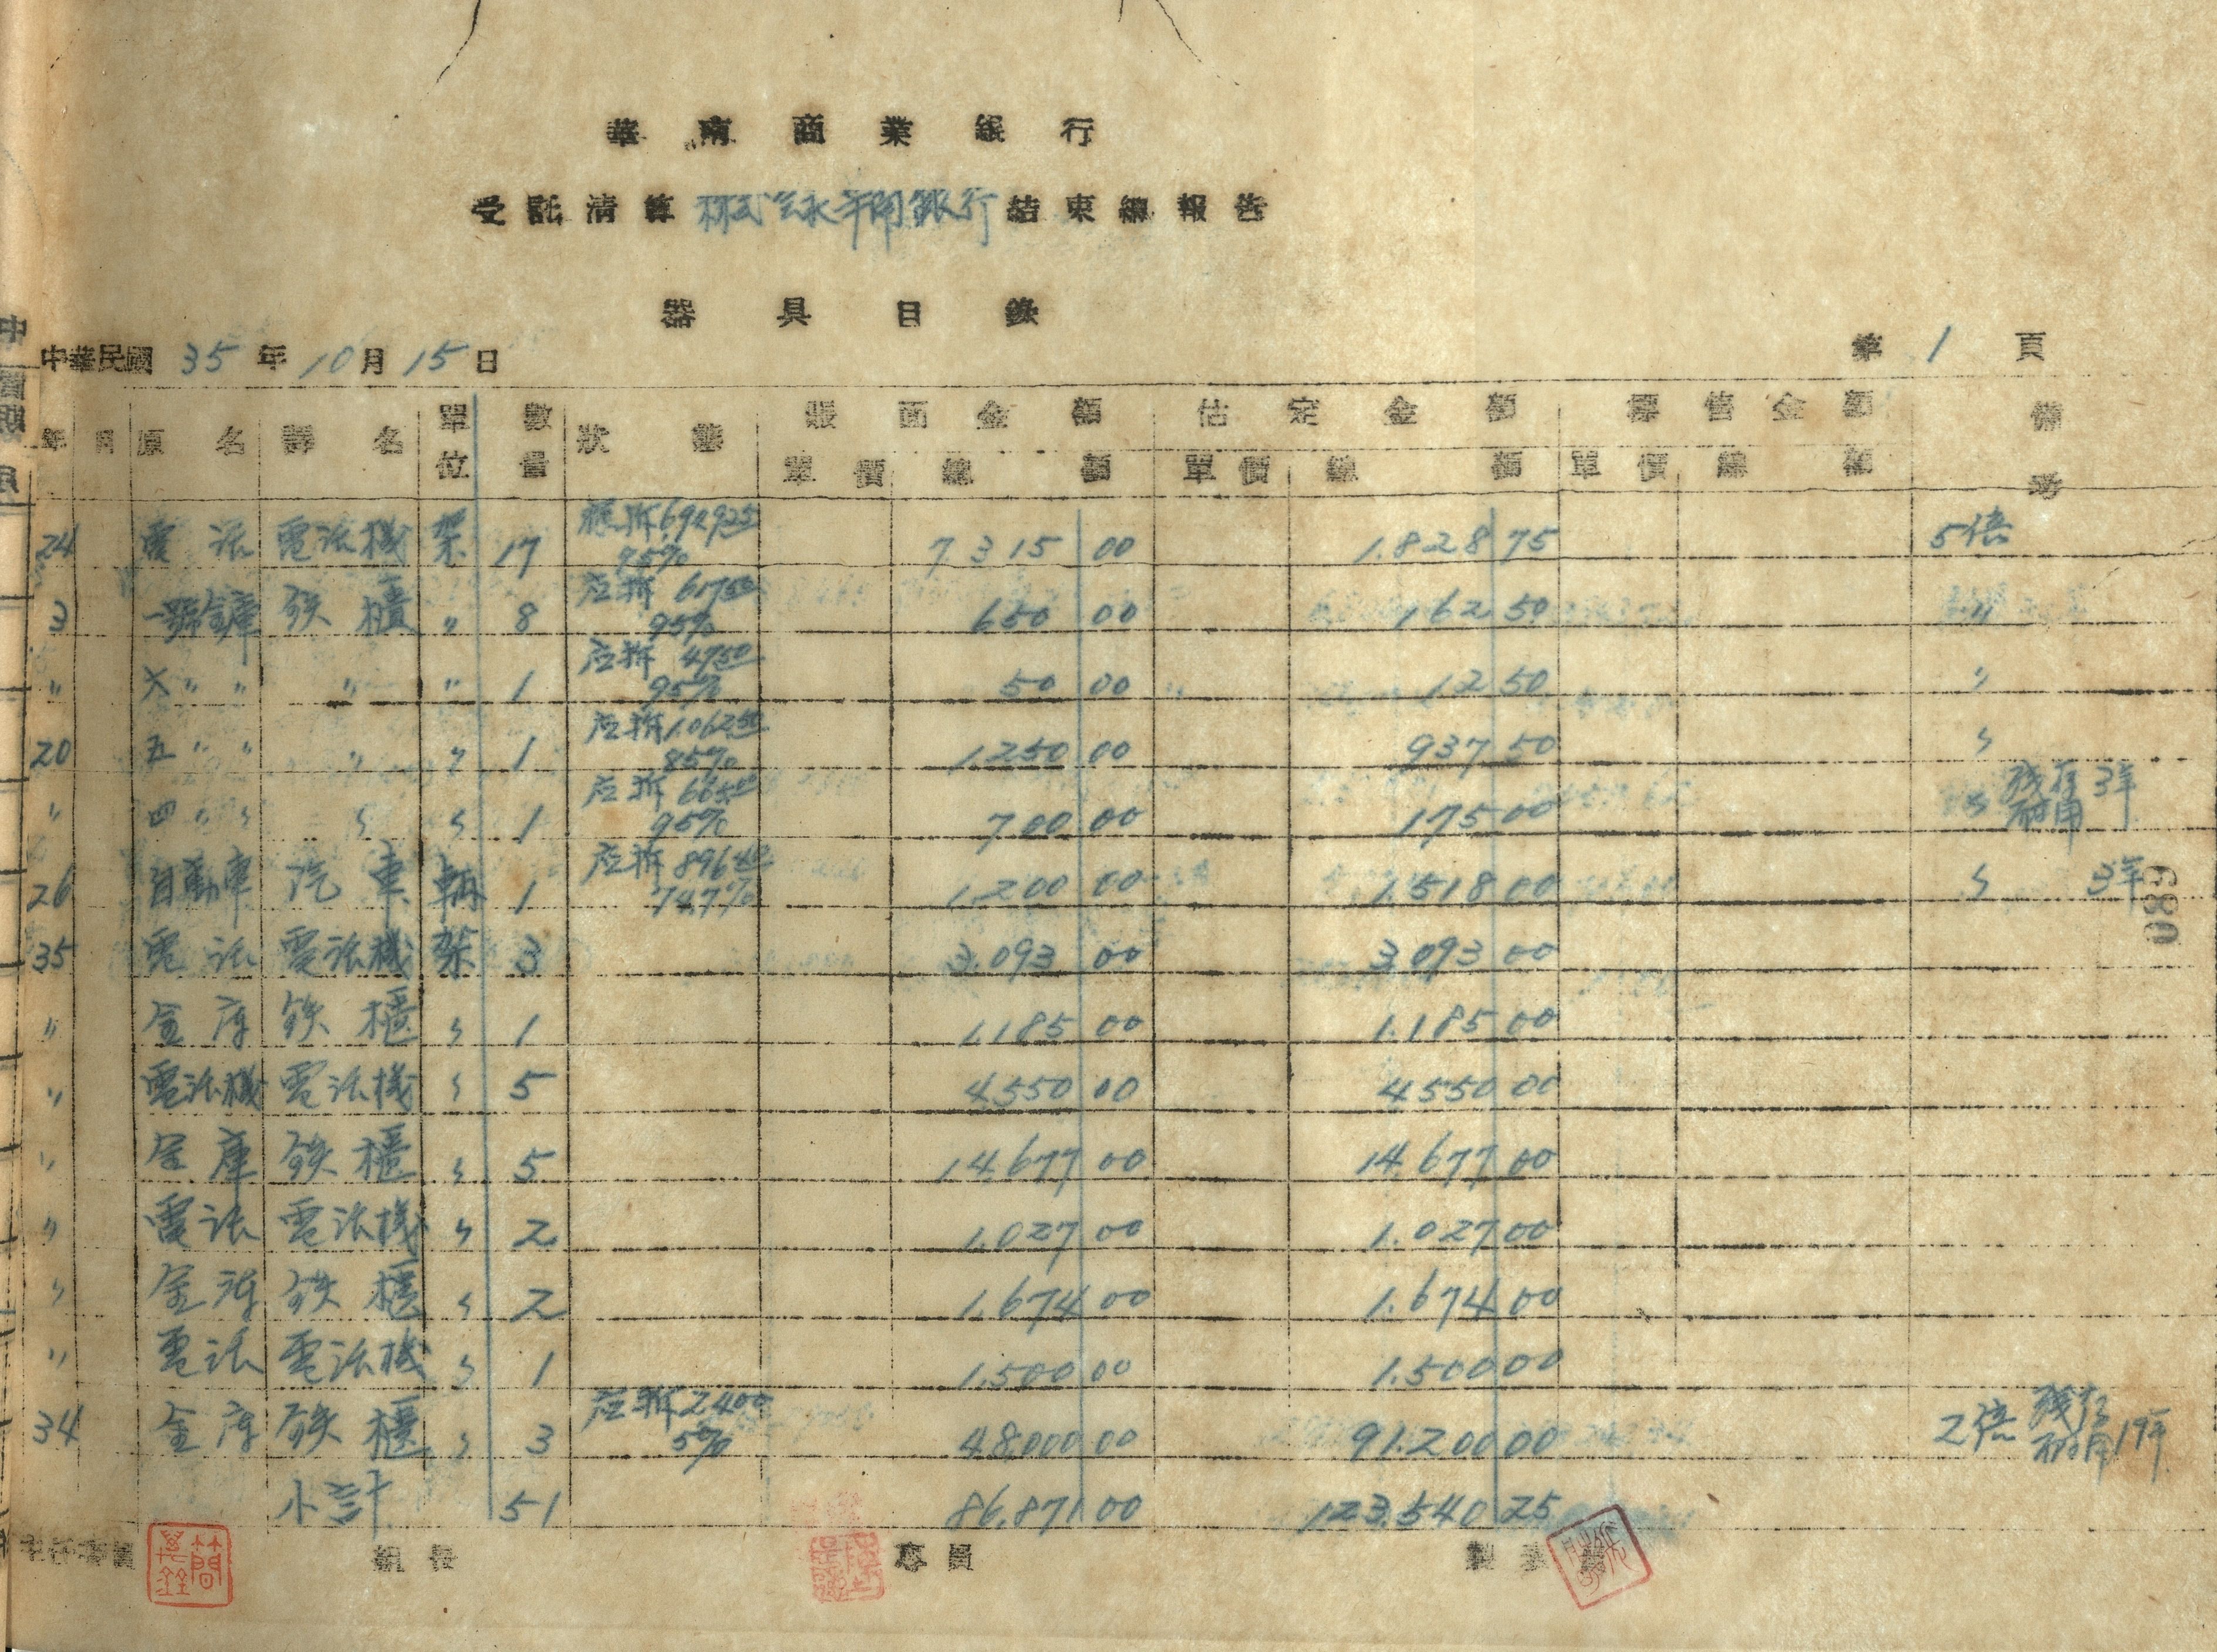 華南商業銀行
受託清算 株式会社 銀行 結束總報告
器具目錄
中華民國 35 年 10 月 15 日 第 1 頁
年 月 原名 譯名 單位 數量 狀態 賬面金額 估定金額 標售金額 備考
單價 總額 單價 總額 單價 總額
24 電話 電話機 架 17 692925 95% 7315 00 1.828 75 5倍
3 一號金庫 鉄櫃 〃 8 61750 95% 650 00 162 50 〃
〃 〃 〃 〃 〃 1 4750 95% 50 00 12 50 〃
20 五 〃 〃 〃 〃 1 1.06250 85% 1.250 00 937 50 〃
〃 四 〃 〃 〃 〃 1 66500 95% 700 00 175 00 〃 残存耐用 3年
26 自動車 汽車 輛 1 89640 74.7% 1.200 00 1.518 00 〃 3年
35 電話 電話機 架 3 3.093 00 3.093 00
〃 金庫 鉄櫃 〃 1 1.185 00 1.185 00
〃 電話機 電話機 〃 5 4.550 00 4.550 00
〃 金庫 鉄櫃 〃 5 14.677 00 14.677 00
〃 電話 電話機 〃 2 1.027 00 1.027 00
〃 金庫 鉄櫃 〃 2 1.674 00 1.674 00
〃 電話 電話機 〃 1 1.500 00 1.500 00
34 金庫 鉄櫃 〃 3 2400 5% 48.000 00 91.200 00 2倍 残存耐用 19年
小計 51 86.871 00 123.540 25
組長 專員 製表員
089